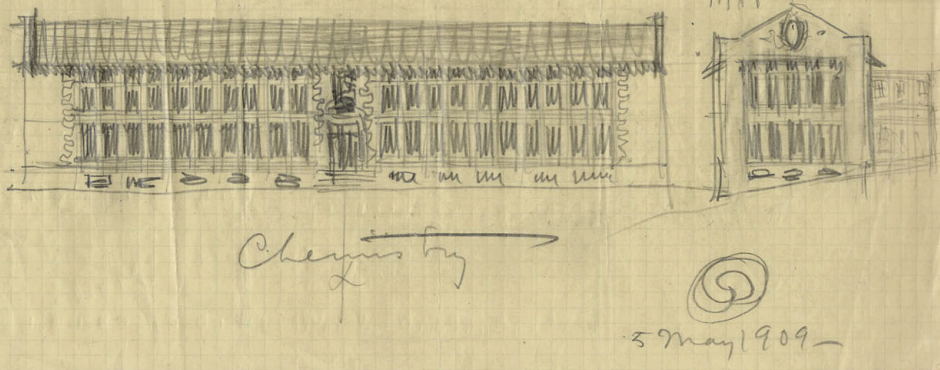 Chemistry
5 May 1909-